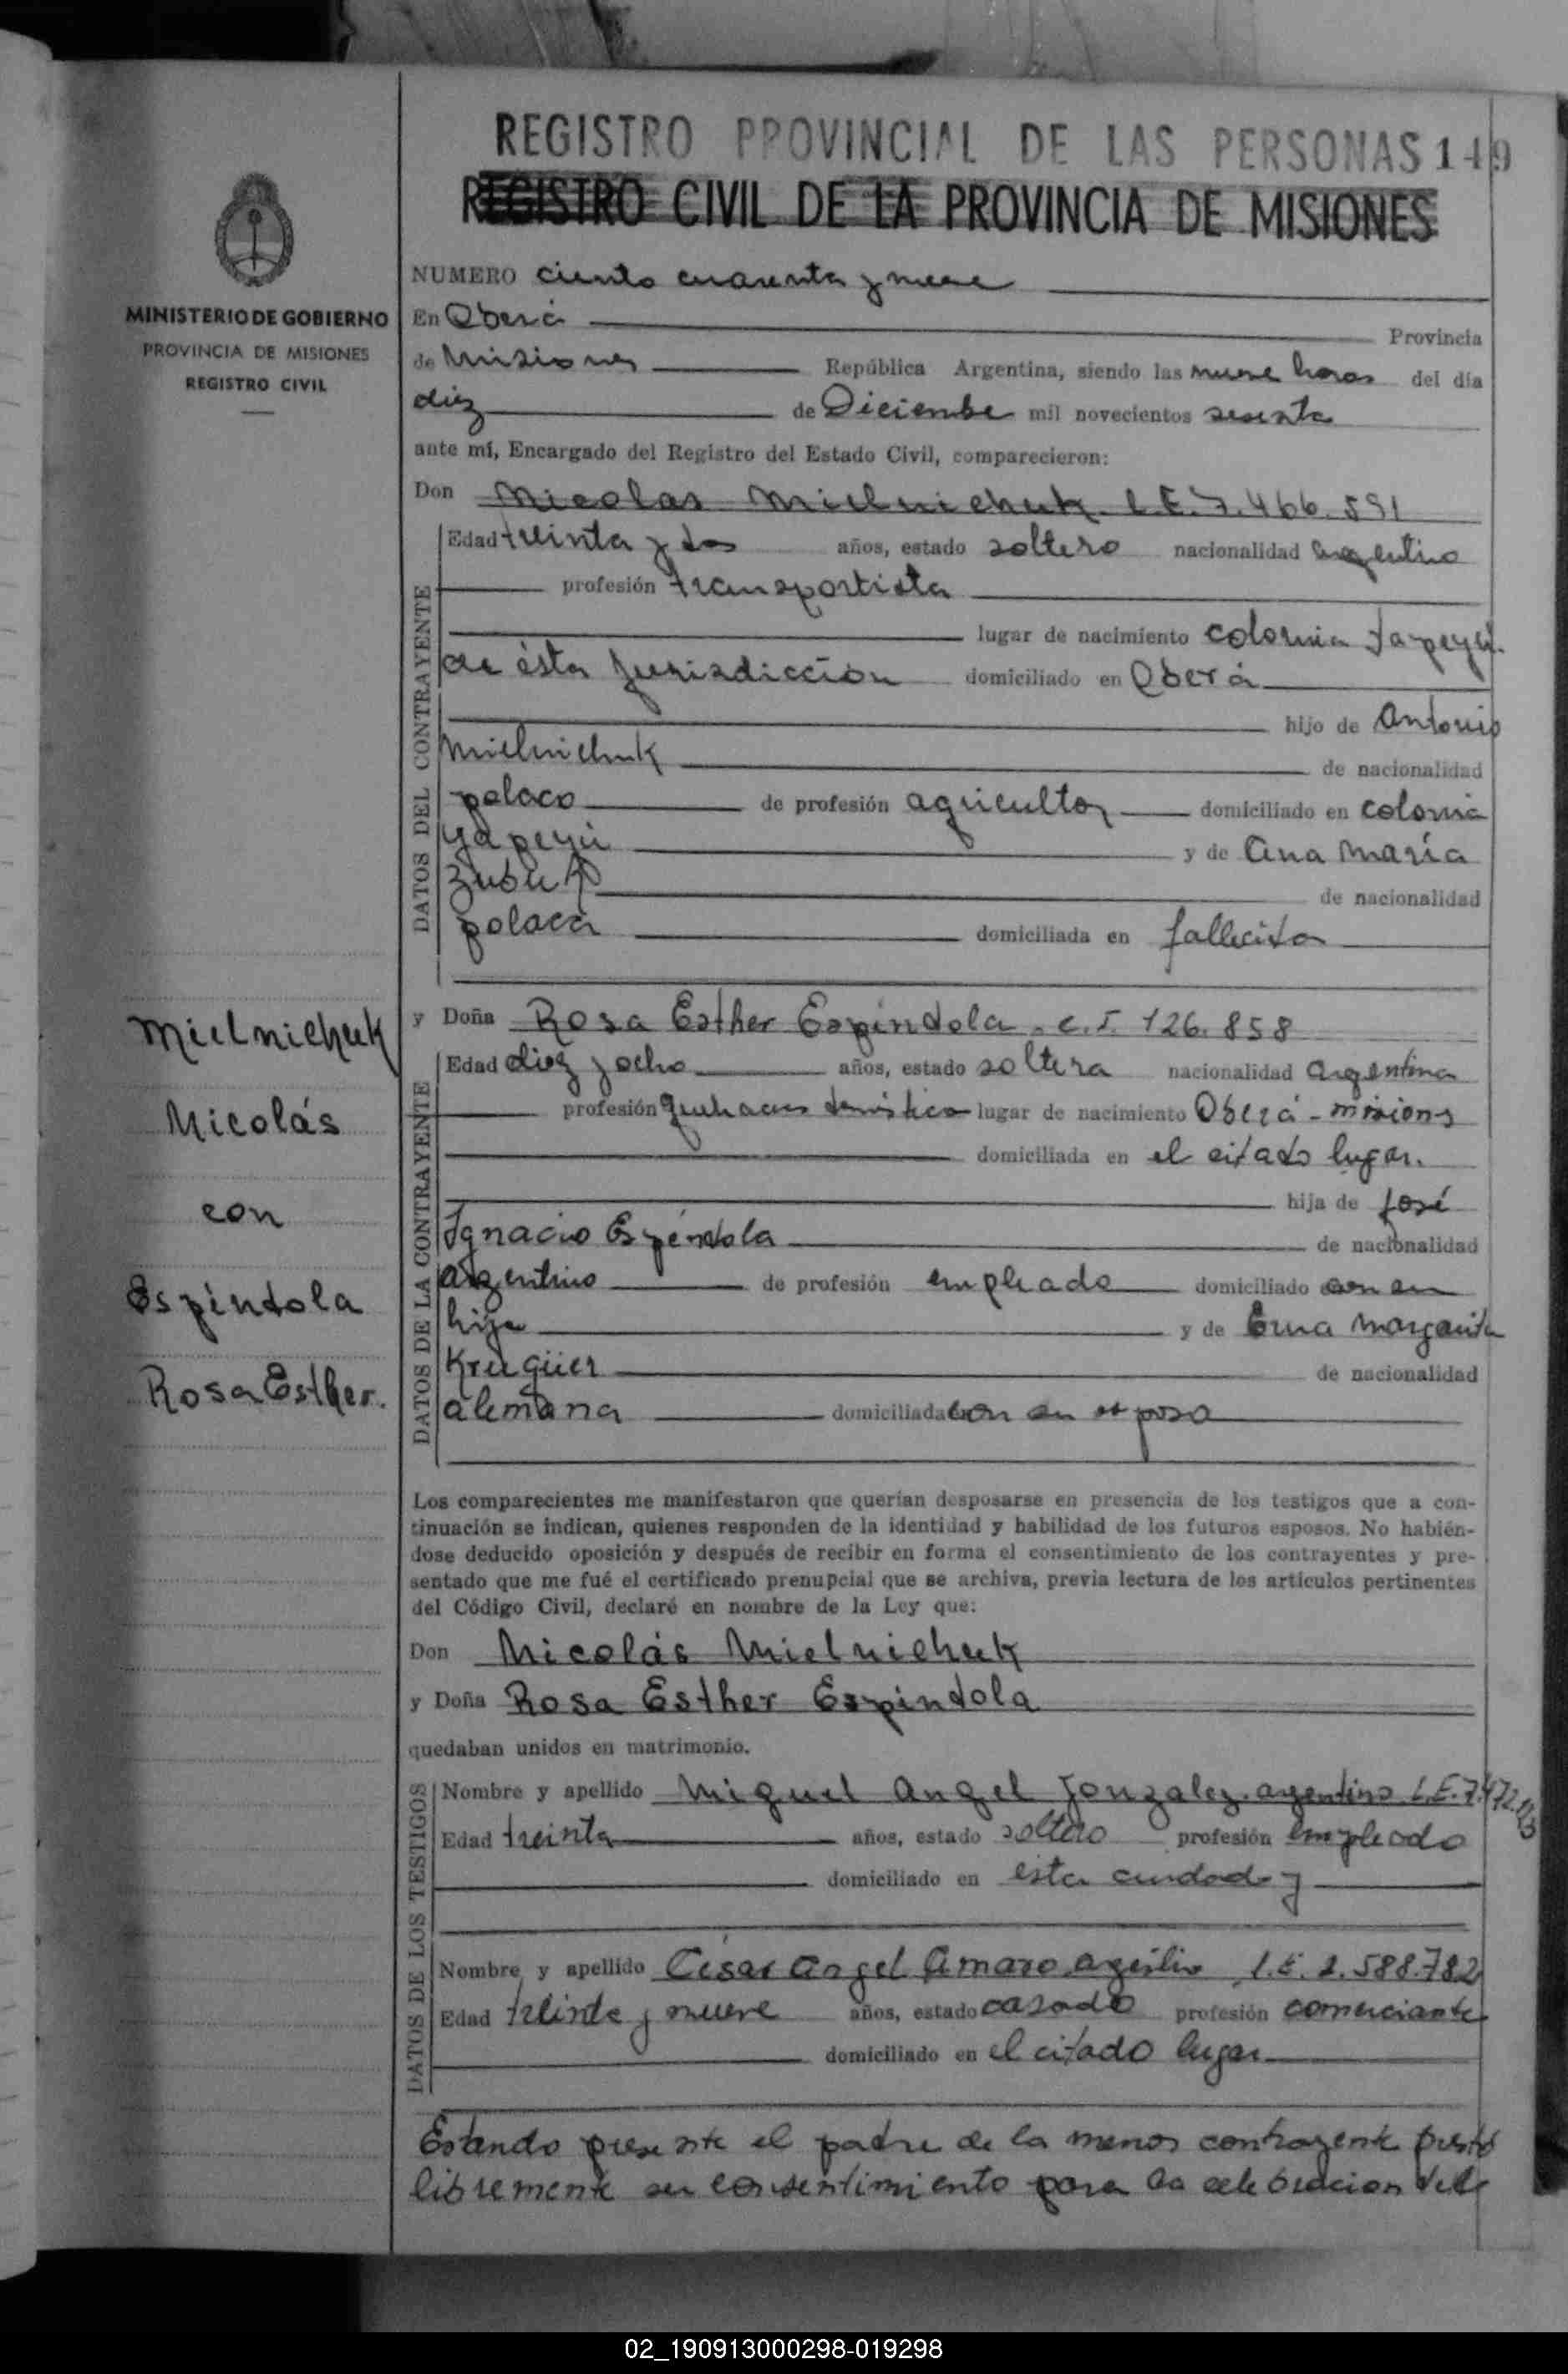 REGISTRO PROVINCIAL DE LAS PERSONAS 149
REGISTRO CIVIL DE LA PROVINCIA DE MISIONES
MINISTERIO DE GOBIERNO
PROVINCIA DE MISIONES
REGISTRO CIVIL
NUMERO ciento cuarenta y nueve
En Oberá Provincia
de Misiones República Argentina, siendo las nueve horas del día
diez de Diciembre mil novecientos sesenta
ante mí, Encargado del Registro del Estado Civil, comparecieron:
Don Nicolas Mielnichuk. L.E. 7.466.591
DATOS DEL CONTRAYENTE
Edad treinta y dos años, estado soltero nacionalidad argentino
profesión transportista
lugar de nacimiento colonia Yapeyú.
de ésta jurisdicción domiciliado en Oberá
hijo de Antonio
Mielnichuk de nacionalidad
polaco de profesión agricultor domiciliado en colonia
Yapeyú y de Ana María
Zubuk de nacionalidad
polaca domiciliada en fallecida
Mielnichuk
Nicolás
con
Espíndola
Rosa Esther.
y Doña Rosa Esther Espíndola. C.I. 126.858
DATOS DE LA CONTRAYENTE
Edad diez y ocho años, estado soltera nacionalidad argentina
profesión quehaceres domésticos lugar de nacimiento Oberá - Misiones
domiciliada en el citado lugar.
hija de José
Ignacio Espíndola de nacionalidad
argentino de profesión empleado domiciliado con su
hija y de Erna Margarita
Krugüer de nacionalidad
alemana domiciliada con su esposo
Los comparecientes me manifestaron que querían desposarse en presencia de los testigos que a con-
tinuación se indican, quienes responden de la identidad y habilidad de los futuros esposos. No habién-
dose deducido oposición y después de recibir en forma el consentimiento de los contrayentes y pre-
sentado que me fué el certificado prenupcial que se archiva, previa lectura de los artículos pertinentes
del Código Civil, declaré en nombre de la Ley que:
Don Nicolás Mielnichuk
y Doña Rosa Esther Espíndola
quedaban unidos en matrimonio.
DATOS DE LOS TESTIGOS
Nombre y apellido Miguel Angel Gonzalez. argentino L.E. 7.472.
Edad treinta años, estado soltero profesión empleado
domiciliado en esta ciudad y
Nombre y apellido César Angel Amaro L.E. 2.588.782
Edad treinta y nueve años, estado casado profesión comerciante
domiciliado en el citado lugar
Estando presente el padre de la menor contrayente prestó
libremente su consentimiento para la celebracion del
02_190913000298-019298